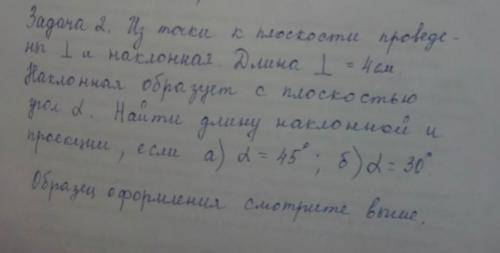 Задача 2. Из точки к плоскости проведе-
ны ⊥ и наклонная. Длина ⊥ = 4см.
Наклонная образует с плоскостью
угол α. Найти длину наклонной и
проекции, если а) α = 45°; б) α = 30°
Образец оформления смотрите выше.